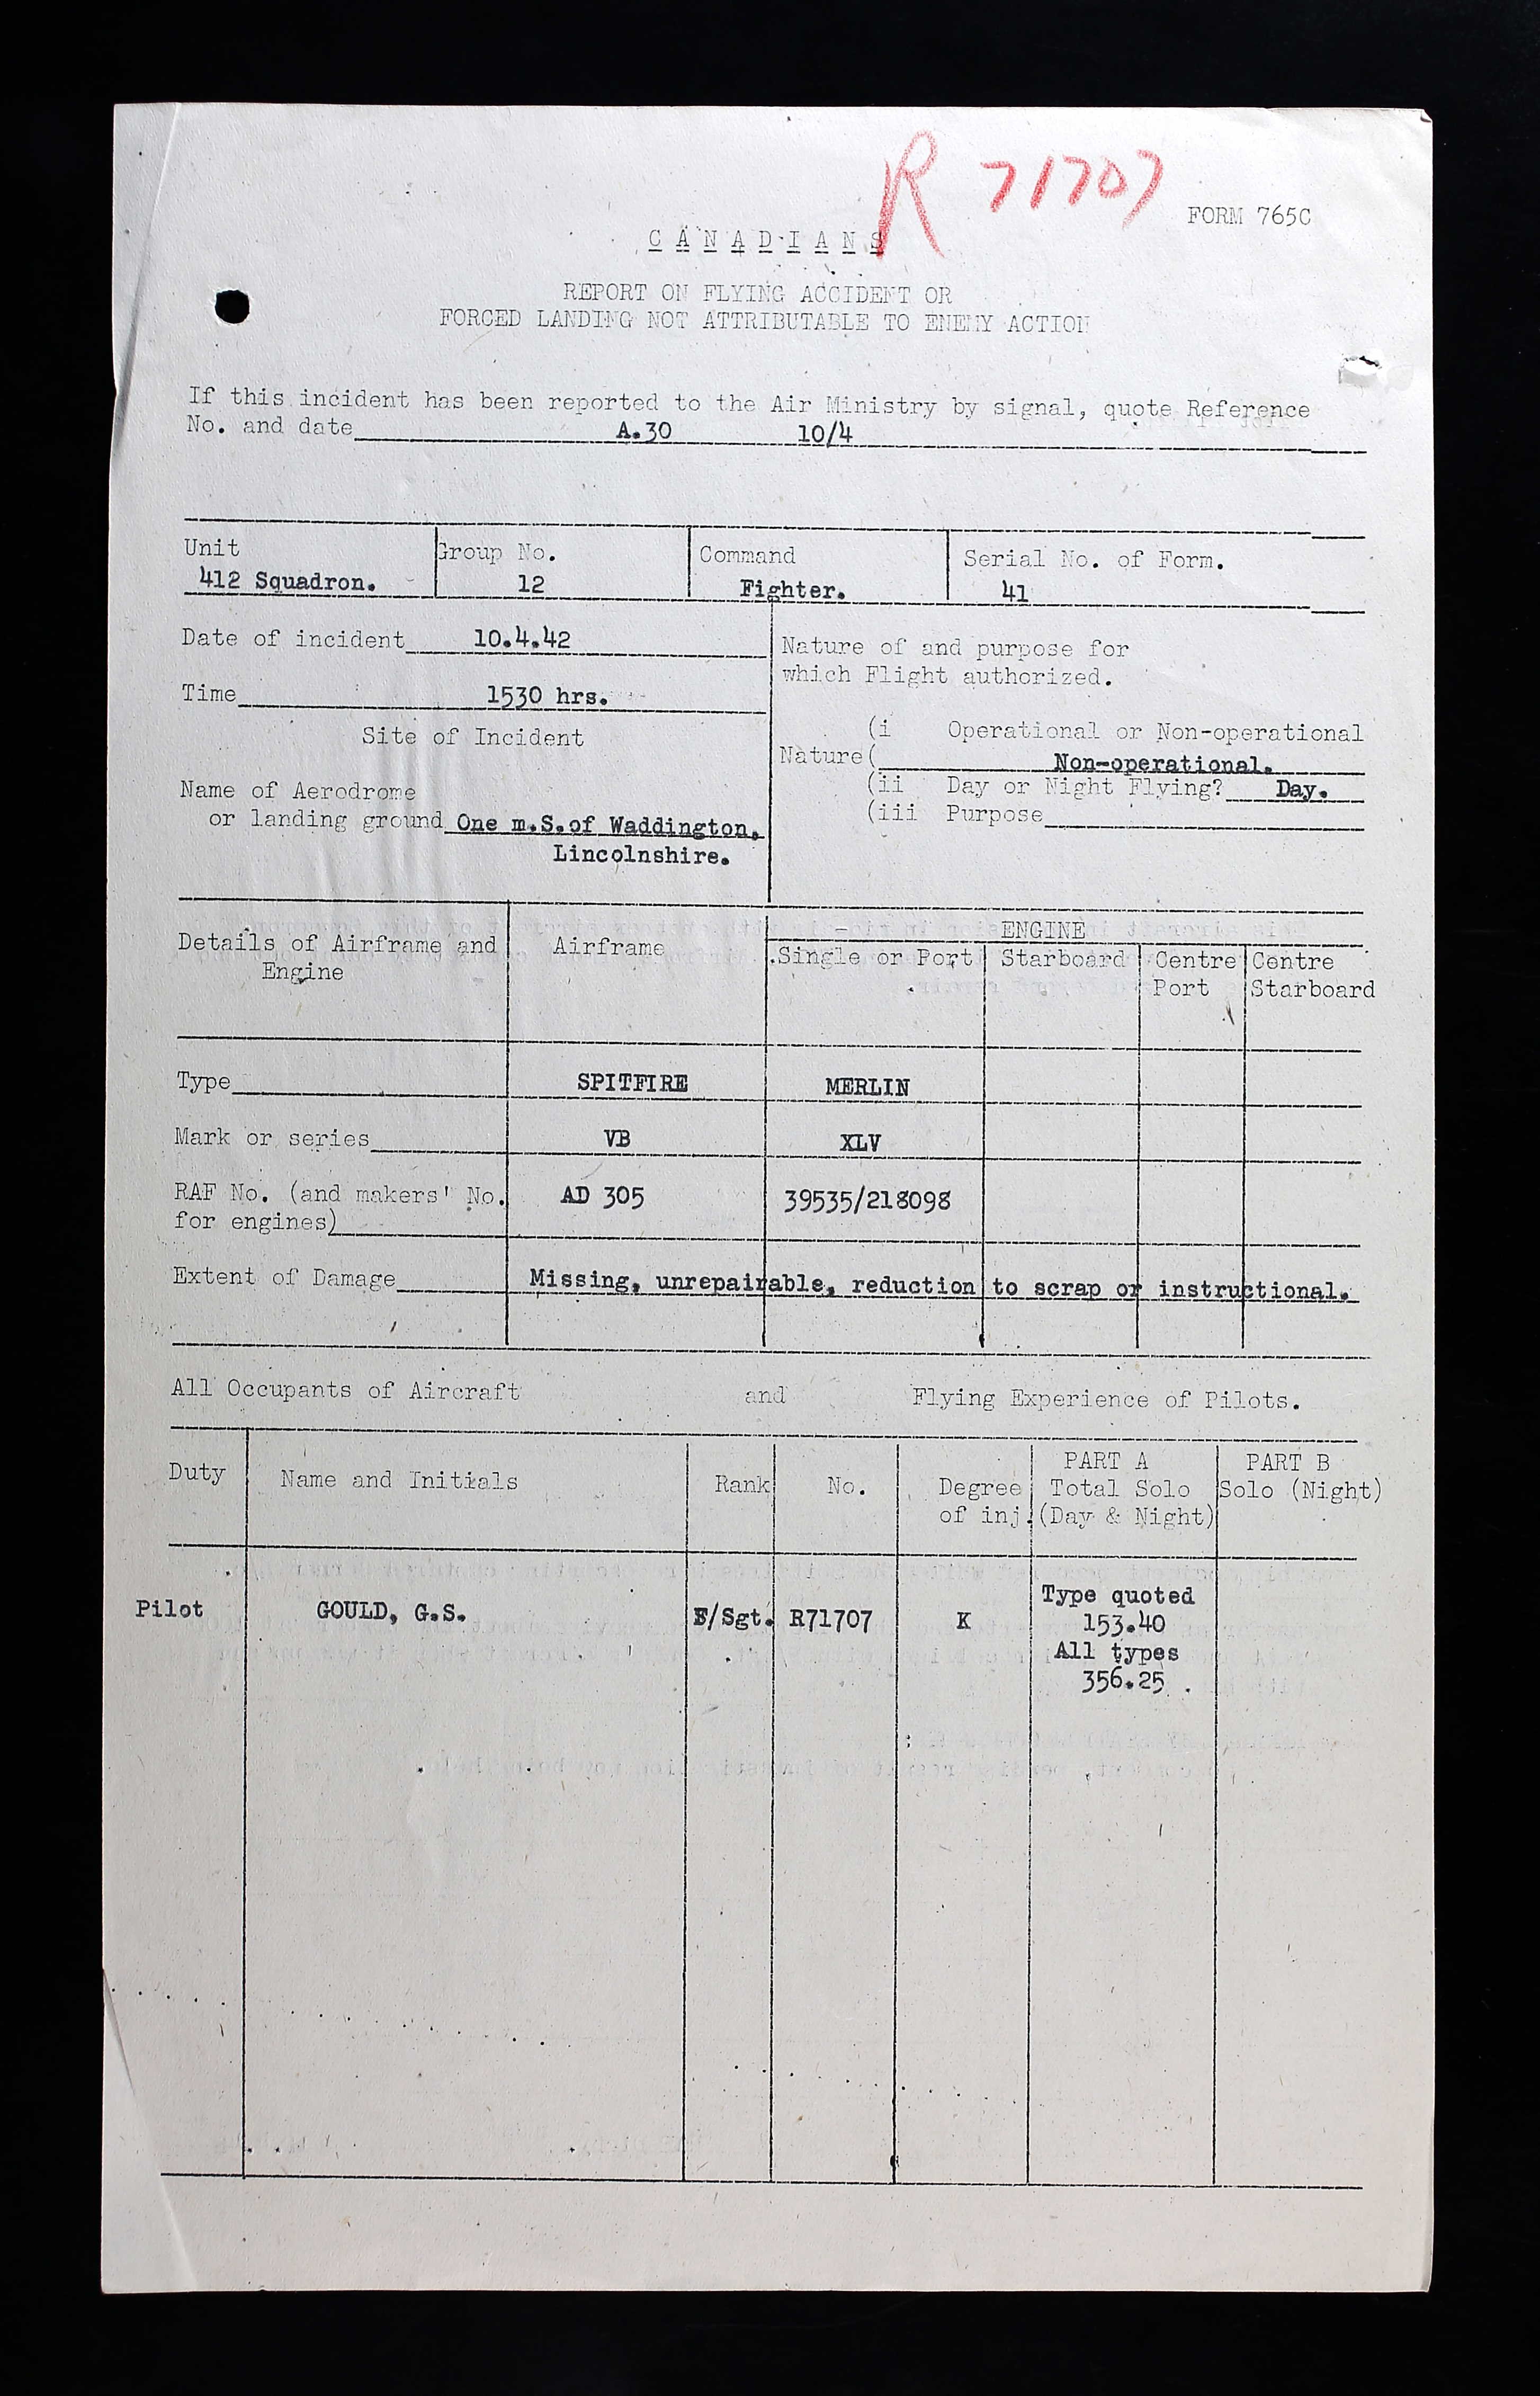 R 71707
FORM 765C
CANADIANS
REPORT ON FLYING ACCIDENT OR
FORCED LANDING NOT ATTRIBUTABLE TO ENEMY ACTION
If this incident has been reported to the Air Ministry by signal, quote Reference
No. and date A.30 10/4
Unit Group No. Command Serial No. of Form.
412 Squadron. 12 Fighter. 41
Date of incident 10.4.42
Time 1530 hrs.
Site of Incident
Name of Aerodrome
or landing ground One m.S.of Waddington.
Lincolnshire.
Nature of and purpose for
which Flight authorized.
(i Operational or Non-operational
Nature( Non-operational.
(ii Day or Night Flying? Day.
(iii Purpose
Details of Airframe and Engine
Airframe
ENGINE
Single or Port Starboard Centre Port Centre Starboard
Type SPITFIRE MERLIN
Mark or series VB XLV
RAF No. (and makers' No. AD 305 39535/218098
for engines)
Extent of Damage Missing, unrepairable, reduction to scrap or instructional.
All Occupants of Aircraft and Flying Experience of Pilots.
Duty Name and Initials Rank No. Degree of inj. PART A Total Solo (Day & Night) PART B Solo (Night)
Pilot GOULD, G.S. F/Sgt. R71707 K Type quoted
153.40
All types
356.25